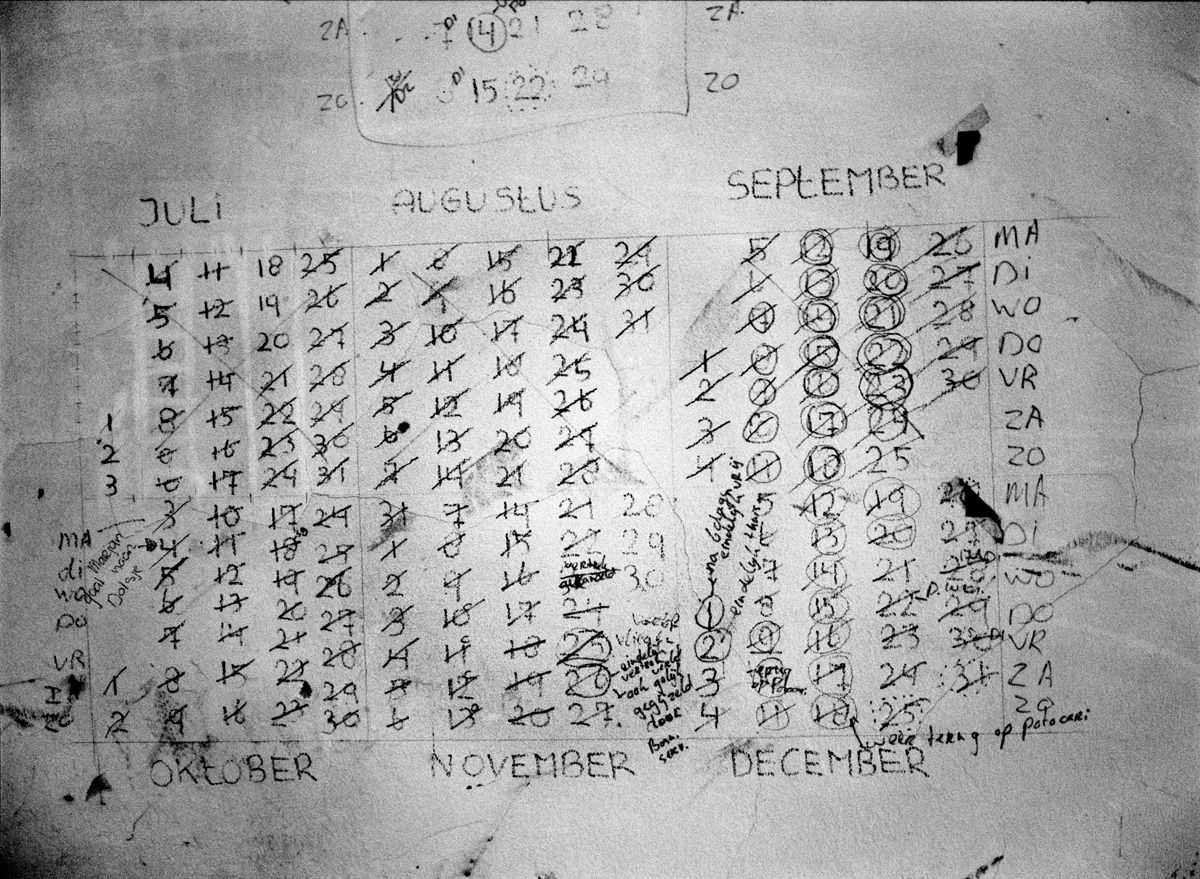 ZA 7 DI 14 21 28 ZA
ZO DI 15 22 29 ZO
JULI AUGUSTUS SEPTEMBER
4 11 18 25 1 8 15 22 29 5 12 19 26 MA
5 12 19 26 2 9 16 23 30 6 13 20 27 DI
6 13 20 27 3 10 17 24 31 7 14 21 28 WO
7 14 21 28 4 11 18 25 1 8 15 22 29 DO
1 8 15 22 29 5 12 19 26 2 9 16 23 30 VR
2 9 16 23 30 6 13 20 27 3 10 17 24 ZA
3 10 17 24 31 7 14 21 28 4 11 18 25 ZO
MA 3 10 17 24 31 7 14 21 28 5 12 19 26 MA
di 4 11 18 25 1 8 15 22 29 6 13 20 27 DI
wo 5 12 19 26 2 9 16 30 7 14 21 28 WO
DO 6 13 20 27 3 10 17 24 1 8 15 22 29 DO
VR 7 14 21 28 4 11 18 25 2 9 16 23 30 VR
1 8 15 22 29 12 19 26 3 17 24 31 ZA
2 9 16 23 30 13 20 27 4 11 18 25 ZO
na 6 dagen
eindelijk vrij
eindelijk thuis
eindelijk
vertrek
gegijzeld
door
Bosn.
serv.
terug
weer terug op potocari
OKTOBER NOVEMBER DECEMBER